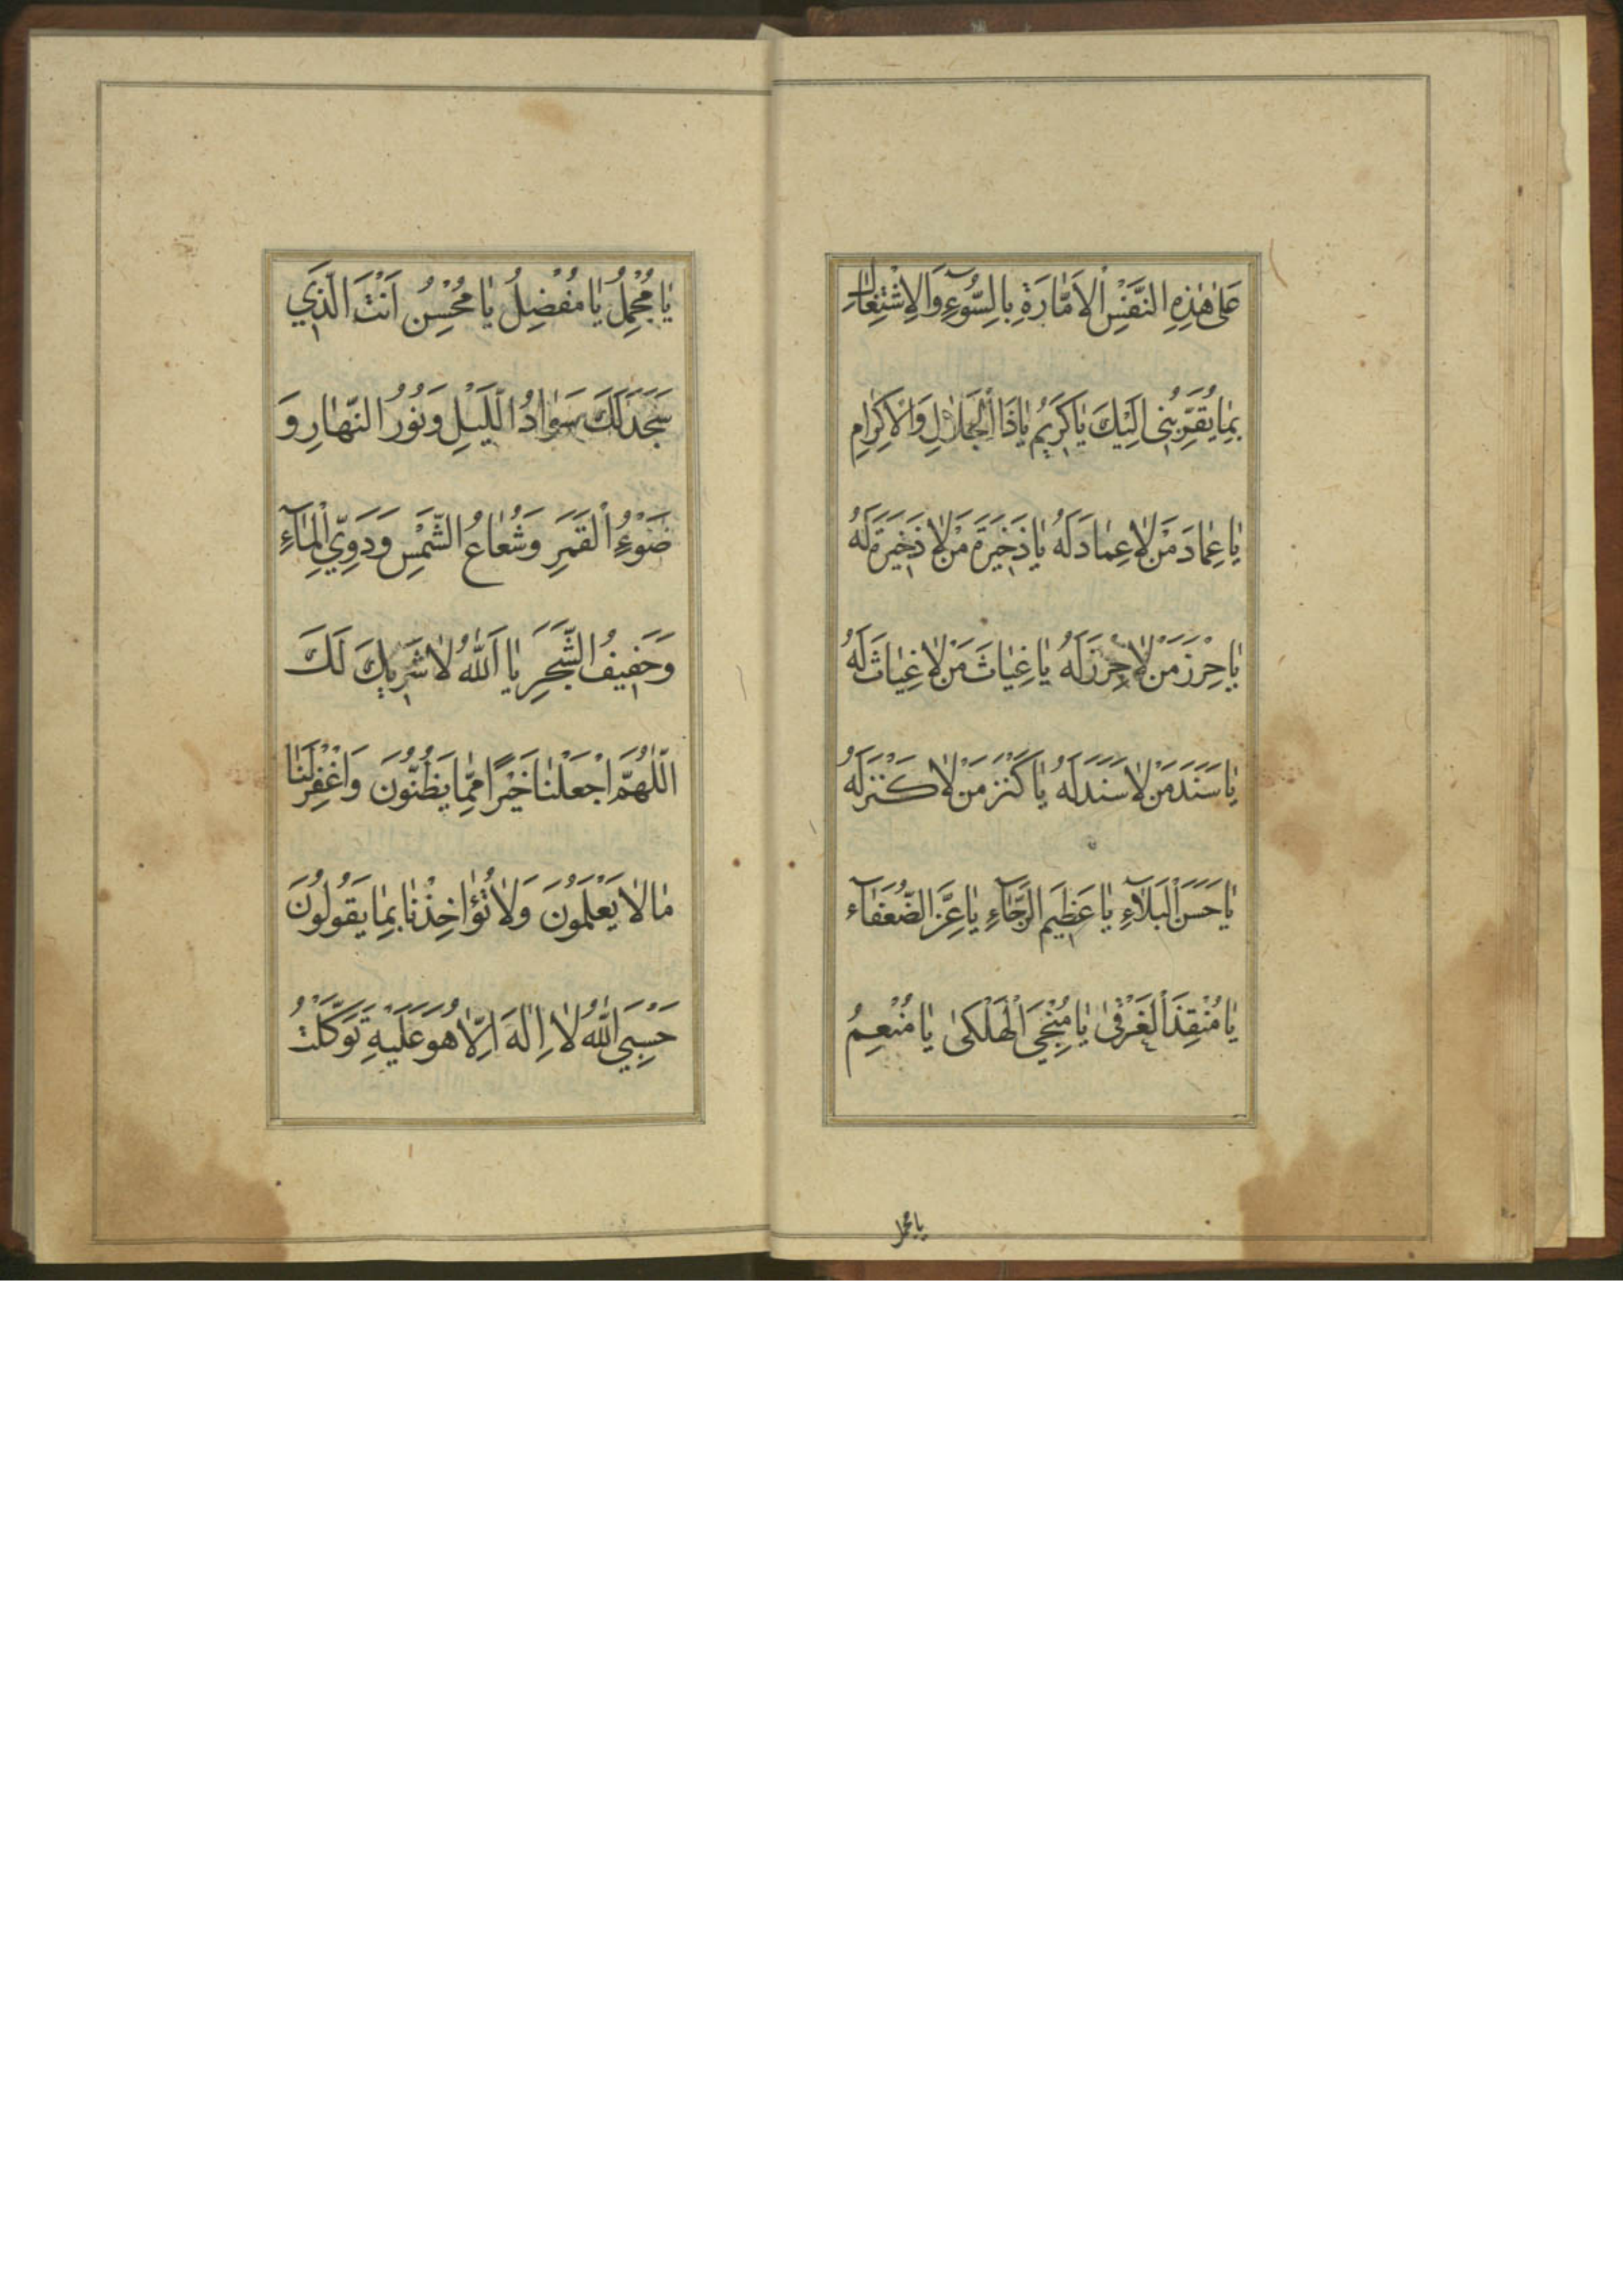 عَلىٰ هٰذِهِ النَّفْسِ الْاَمّٰارَةِ بِالسُّوٓءِ وَالْاِشْتِغٰالِ
بِمٰا يُقَرِّبُنِى اِلَيْكَ يٰا كَرِيمُ يٰا ذَا الْجَلالِ وَالْاِكْرٰامِ
يٰا عِمٰادَ مَنْ لٰا عِمٰادَ لَهُ يٰا ذَخِيرَةَ مَنْ لٰا ذَخِيرَةَ لَهُ
يٰا حِرْزَ مَنْ لٰا حِرْزَ لَهُ يٰا غِيٰاثَ مَنْ لٰا غِيٰاثَ لَهُ
يٰا سَنَدَ مَنْ لٰا سَنَدَ لَهُ يٰا كَنْزَ مَنْ لٰا كَنْزَ لَهُ
يٰا حَسَنَ الْبَلآءِ يٰا عَظِيمَ الرَّجٰآءِ يٰا عِزَّ الضُّعَفٰآءِ
يٰا مُنْقِذَ الْغَرْقىٰ يٰا مُنْجِيَ الْهَلْكىٰ يٰا مُنْعِمُ
يا مجمل
يٰا مُجْمِلُ يٰا مُفْضِلُ يٰا مُحْسِنُ اَنْتَ الَّذِي
سَجَدَ لَكَ سَوٰادُ اللَّيْلِ وَنُورُ النَّهٰارِ وَ
ضَوْءُ الْقَمَرِ وَشُعٰاعُ الشَّمْسِ وَدَوِيُّ الْمٰآءِ
وَحَفِيفُ الشَّجَرِ يٰا اَللّٰهُ لٰا شَرِيكَ لَكَ
اَللّٰهُمَّ اجْعَلْنٰا خَيْرًا مِمّٰا يَظُنُّونَ وَاغْفِرْ لَنٰا
مٰا لٰا يَعْلَمُونَ وَلٰا تُؤٰاخِذْنٰا بِمٰا يَقُولُونَ
حَسْبِيَ اللّٰهُ لٰا اِلٰهَ اِلّٰا هُوَ عَلَيْهِ تَوَكَّلْتُ